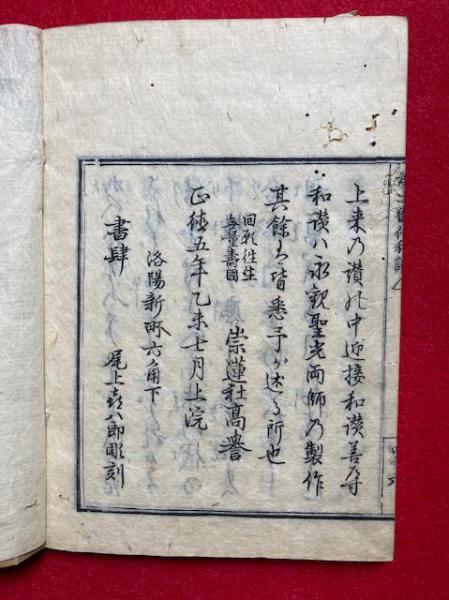 上来乃讃の中迎接和讃善導
和讃ハ永観聖光両師乃製作
其餘ハ皆悉予が述る所也
回願往生
無量壽国
崇蓮社高譽
正徳五年乙未七月上浣
洛陽新町六角下
書肆
尾上喜八郎彫刻